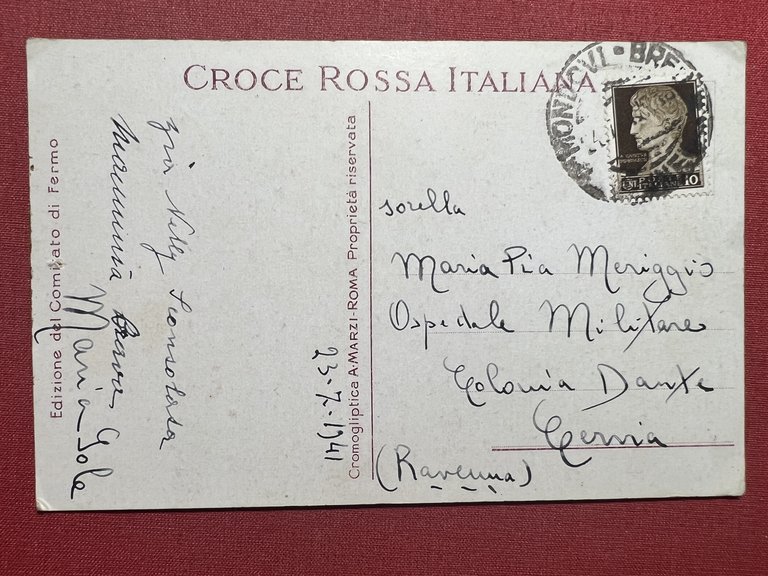 CROCE ROSSA ITALIANA
MONDOVI • BRE
10
sorella
Maria Pia Meriggio
Ospedale Militare
Colonia Dante
Cervia
(Ravenna)
Edizione del Comitato di Fermo
Cromogliptica A. MARZI - ROMA Proprietà riservata
zia Nelly Sconsolata
Mammina
Mariangola
23.7.1941